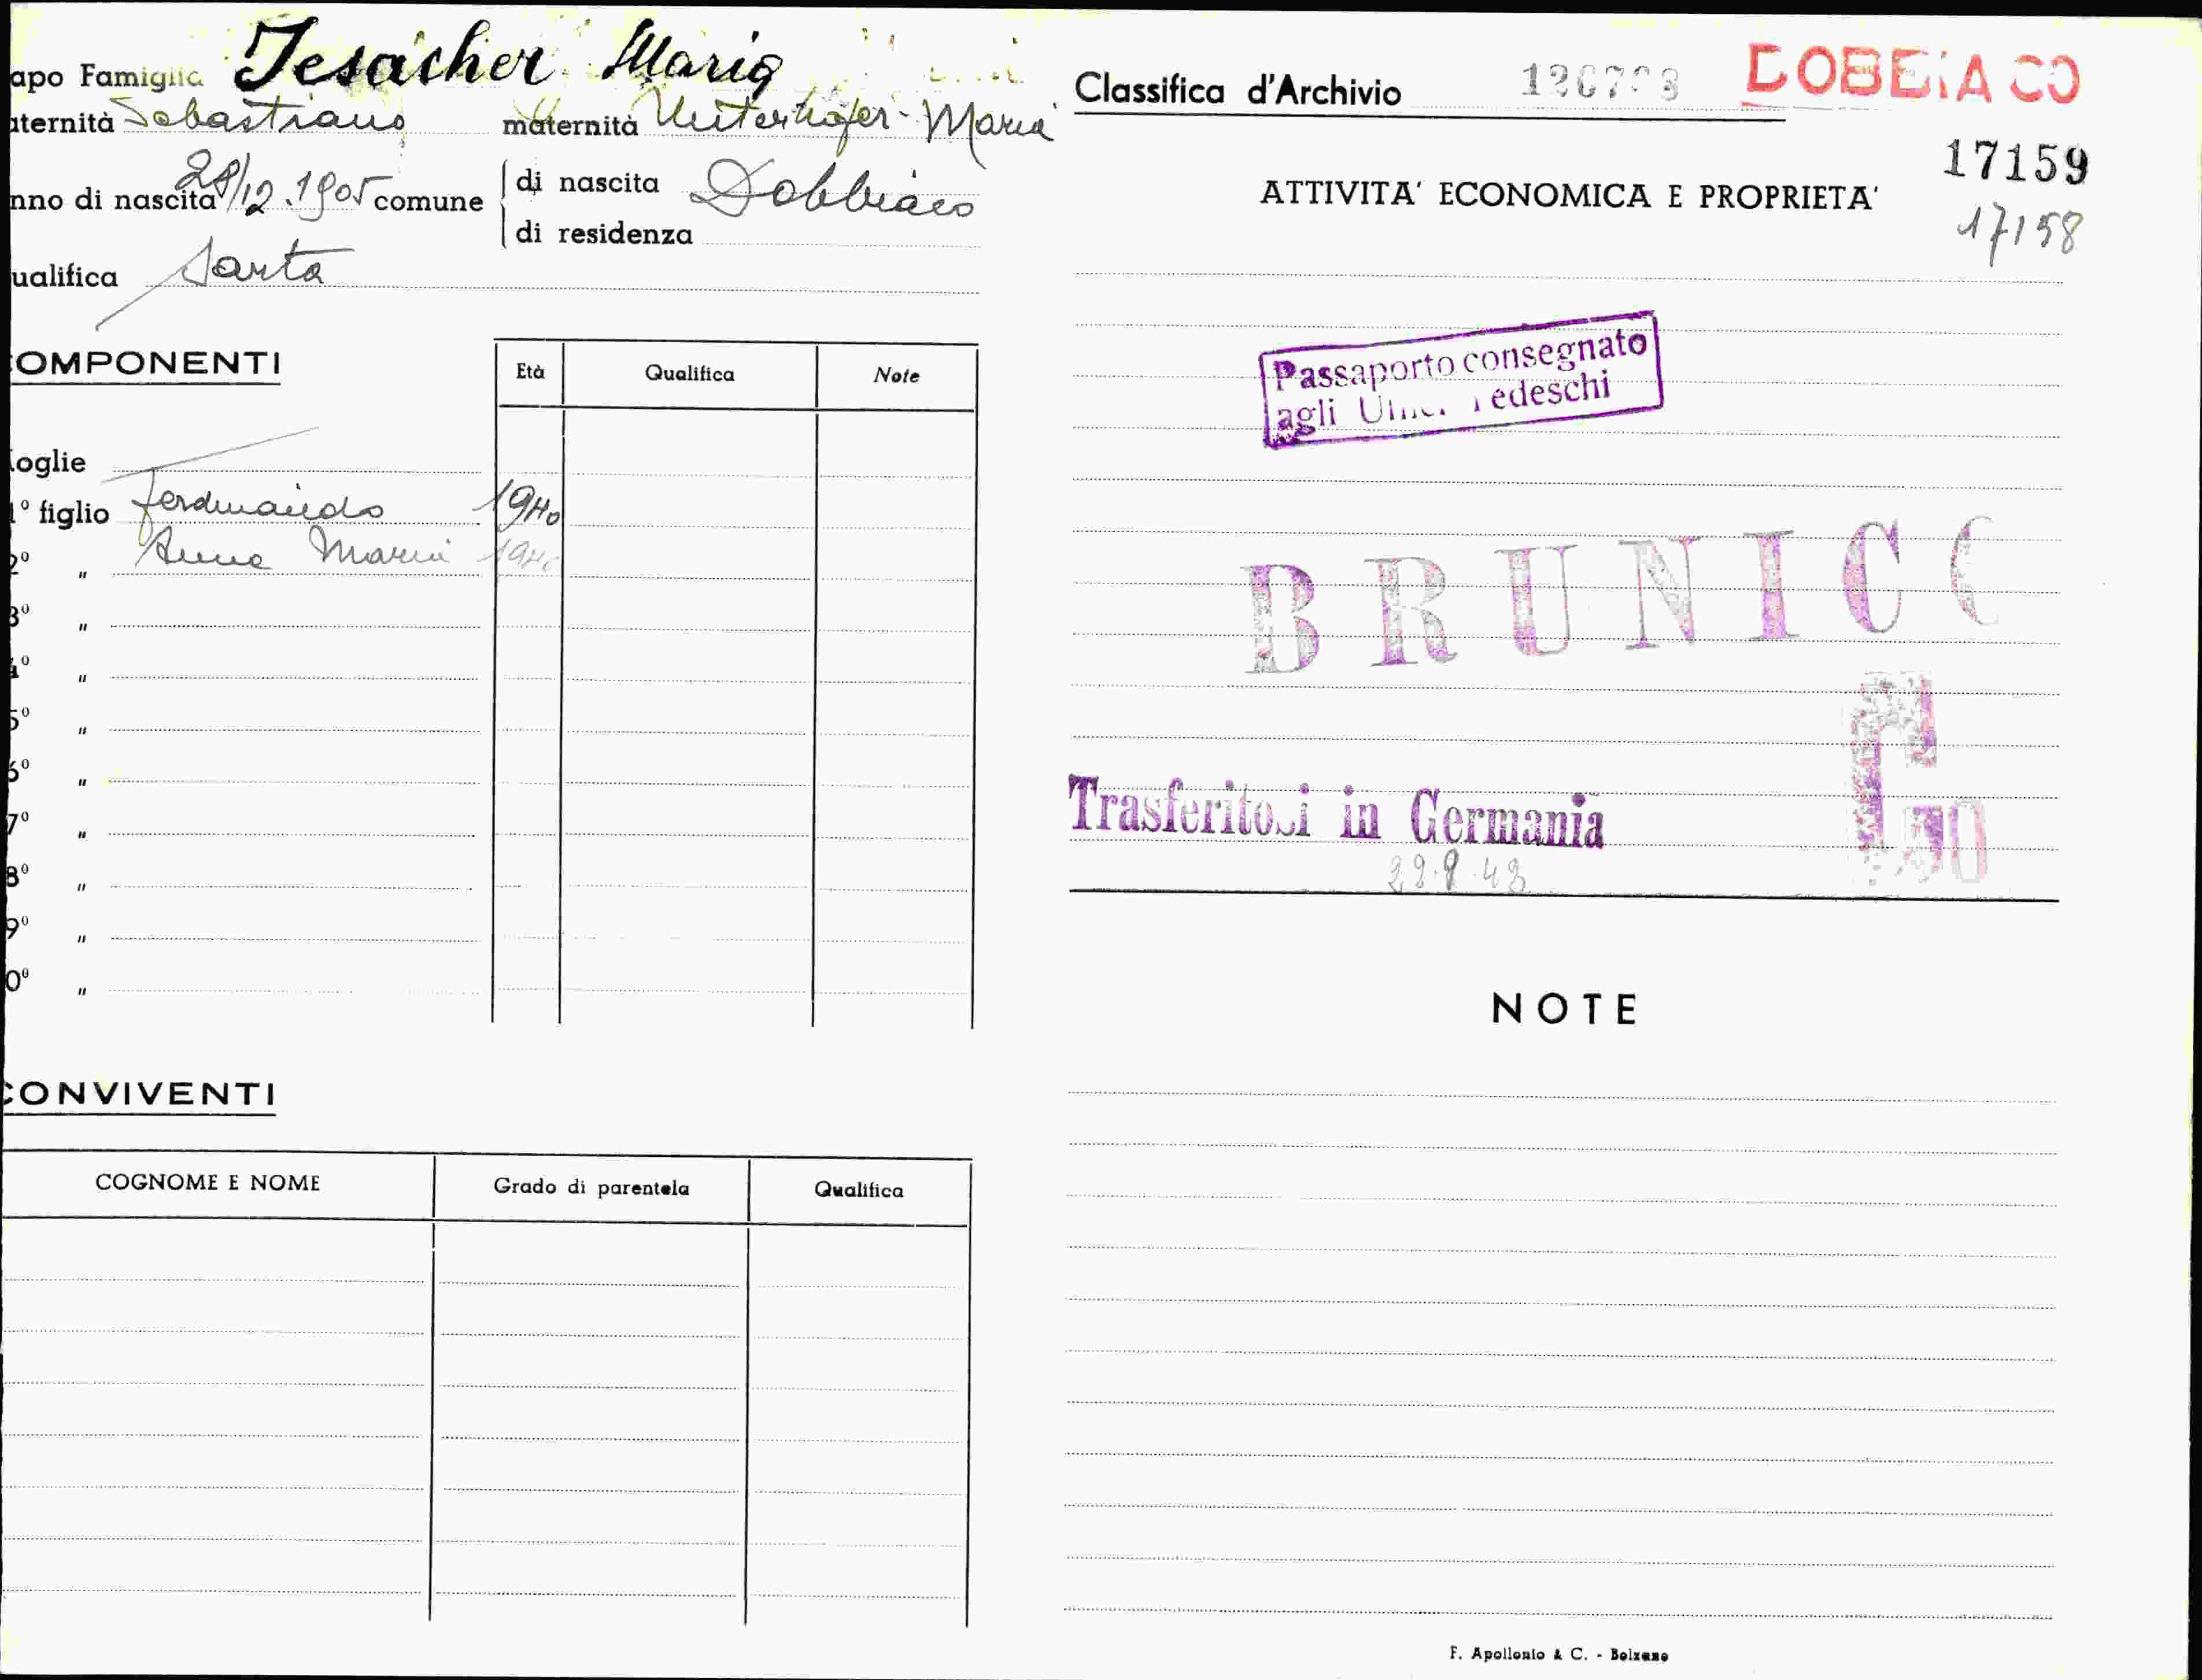 apo Famiglia Jesacher Maria
aternità Sebastiano maternità Unterhofer Maria
nno di nascita 28/12.1905 comune di nascita Dobbiaco
di residenza
ualifica Sarta
COMPONENTI
Età Qualifica Note
oglie
1º figlio Ferdinando 1940
2º " Anna Maria 1940
3º "
4º "
5º "
6º "
7º "
8º "
9º "
0º "
CONVIVENTI
COGNOME E NOME Grado di parentela Qualifica
Classifica d'Archivio DOBBIACO
17159
ATTIVITA' ECONOMICA E PROPRIETA'
17158
Passaporto consegnato
agli Uffici Tedeschi
BRUNICO
Trasferitosi in Germania
NOTE
F. Apollonio & C. - Bolzano